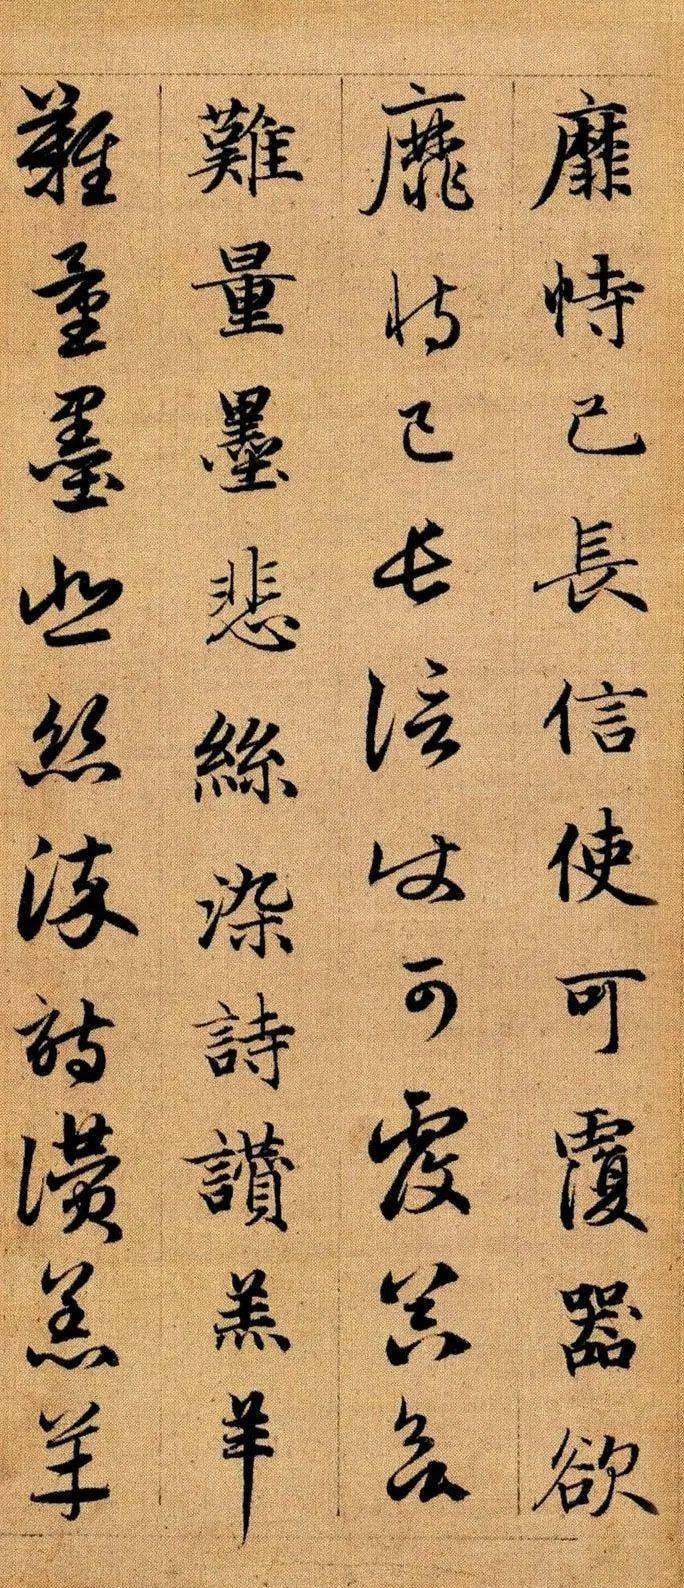 靡恃己長信使可覆器欲
靡恃己長信使可覆器欲
難量墨悲絲染詩讚羔羊
難量墨悲絲染詩讚羔羊